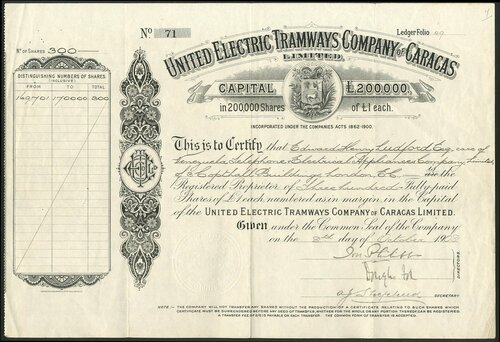 No 71
Ledger Folio
No OF SHARES 300
UNITED ELECTRIC TRAMWAYS COMPANY OF CARACAS
LIMITED
CAPITAL £200,000.
in 200,000 Shares of £1 each.
DISTINGUISHING NUMBERS OF SHARES
(INCLUSIVE)
FROM TO TOTAL
169701 170000 300
INCORPORATED UNDER THE COMPANIES ACTS 1862-1900.
This is to Certify that Edward Henry Ludford Esq. care of
Venezuela Telephone & Electrical Appliances Company, Limited
of 3 Copthall Buildings, London E.C. is the
Registered Proprietor of Three hundred Fully paid
Shares of £1 each numbered as in margin, in the Capital
of the UNITED ELECTRIC TRAMWAYS COMPANY OF CARACAS LIMITED.
Given under the Common Seal of the Company
on the day of October 1908
DIRECTORS.
SECRETARY.
NOTE :- THE COMPANY WILL NOT TRANSFER ANY SHARES WITHOUT THE PRODUCTION OF A CERTIFICATE RELATING TO SUCH SHARES WHICH
CERTIFICATE MUST BE SURRENDERED BEFORE ANY DEED OF TRANSFER, WHETHER FOR THE WHOLE OR ANY PORTION THEREOF CAN BE REGISTERED
A TRANSFER FEE IS PAYABLE ON EACH TRANSFER. THE COMMON FORM OF TRANSFER IS ACCEPTED.